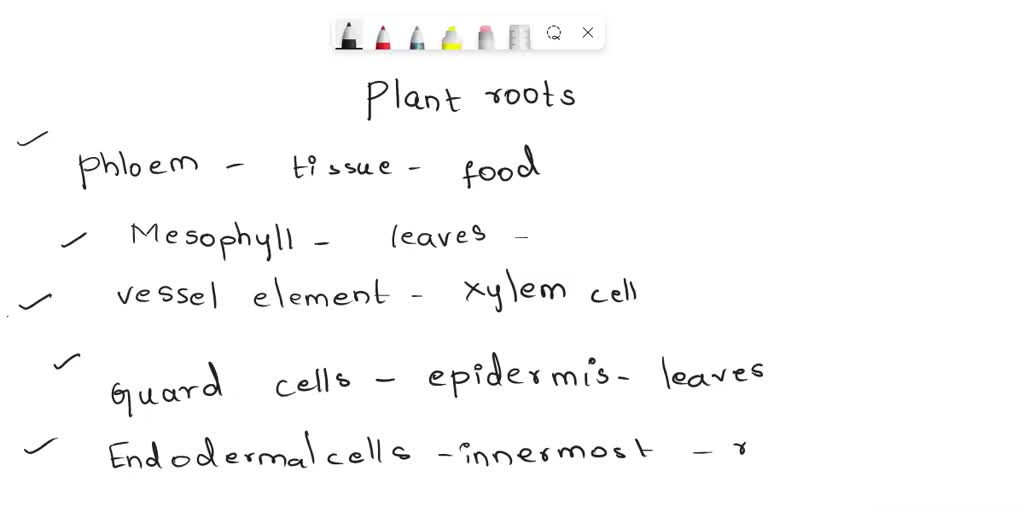 Plant roots
Phloem - tissue - food
Mesophyll - leaves -
vessel element - xylem cell
Guard cells - epidermis - leaves
Endodermal cells - innermost - r